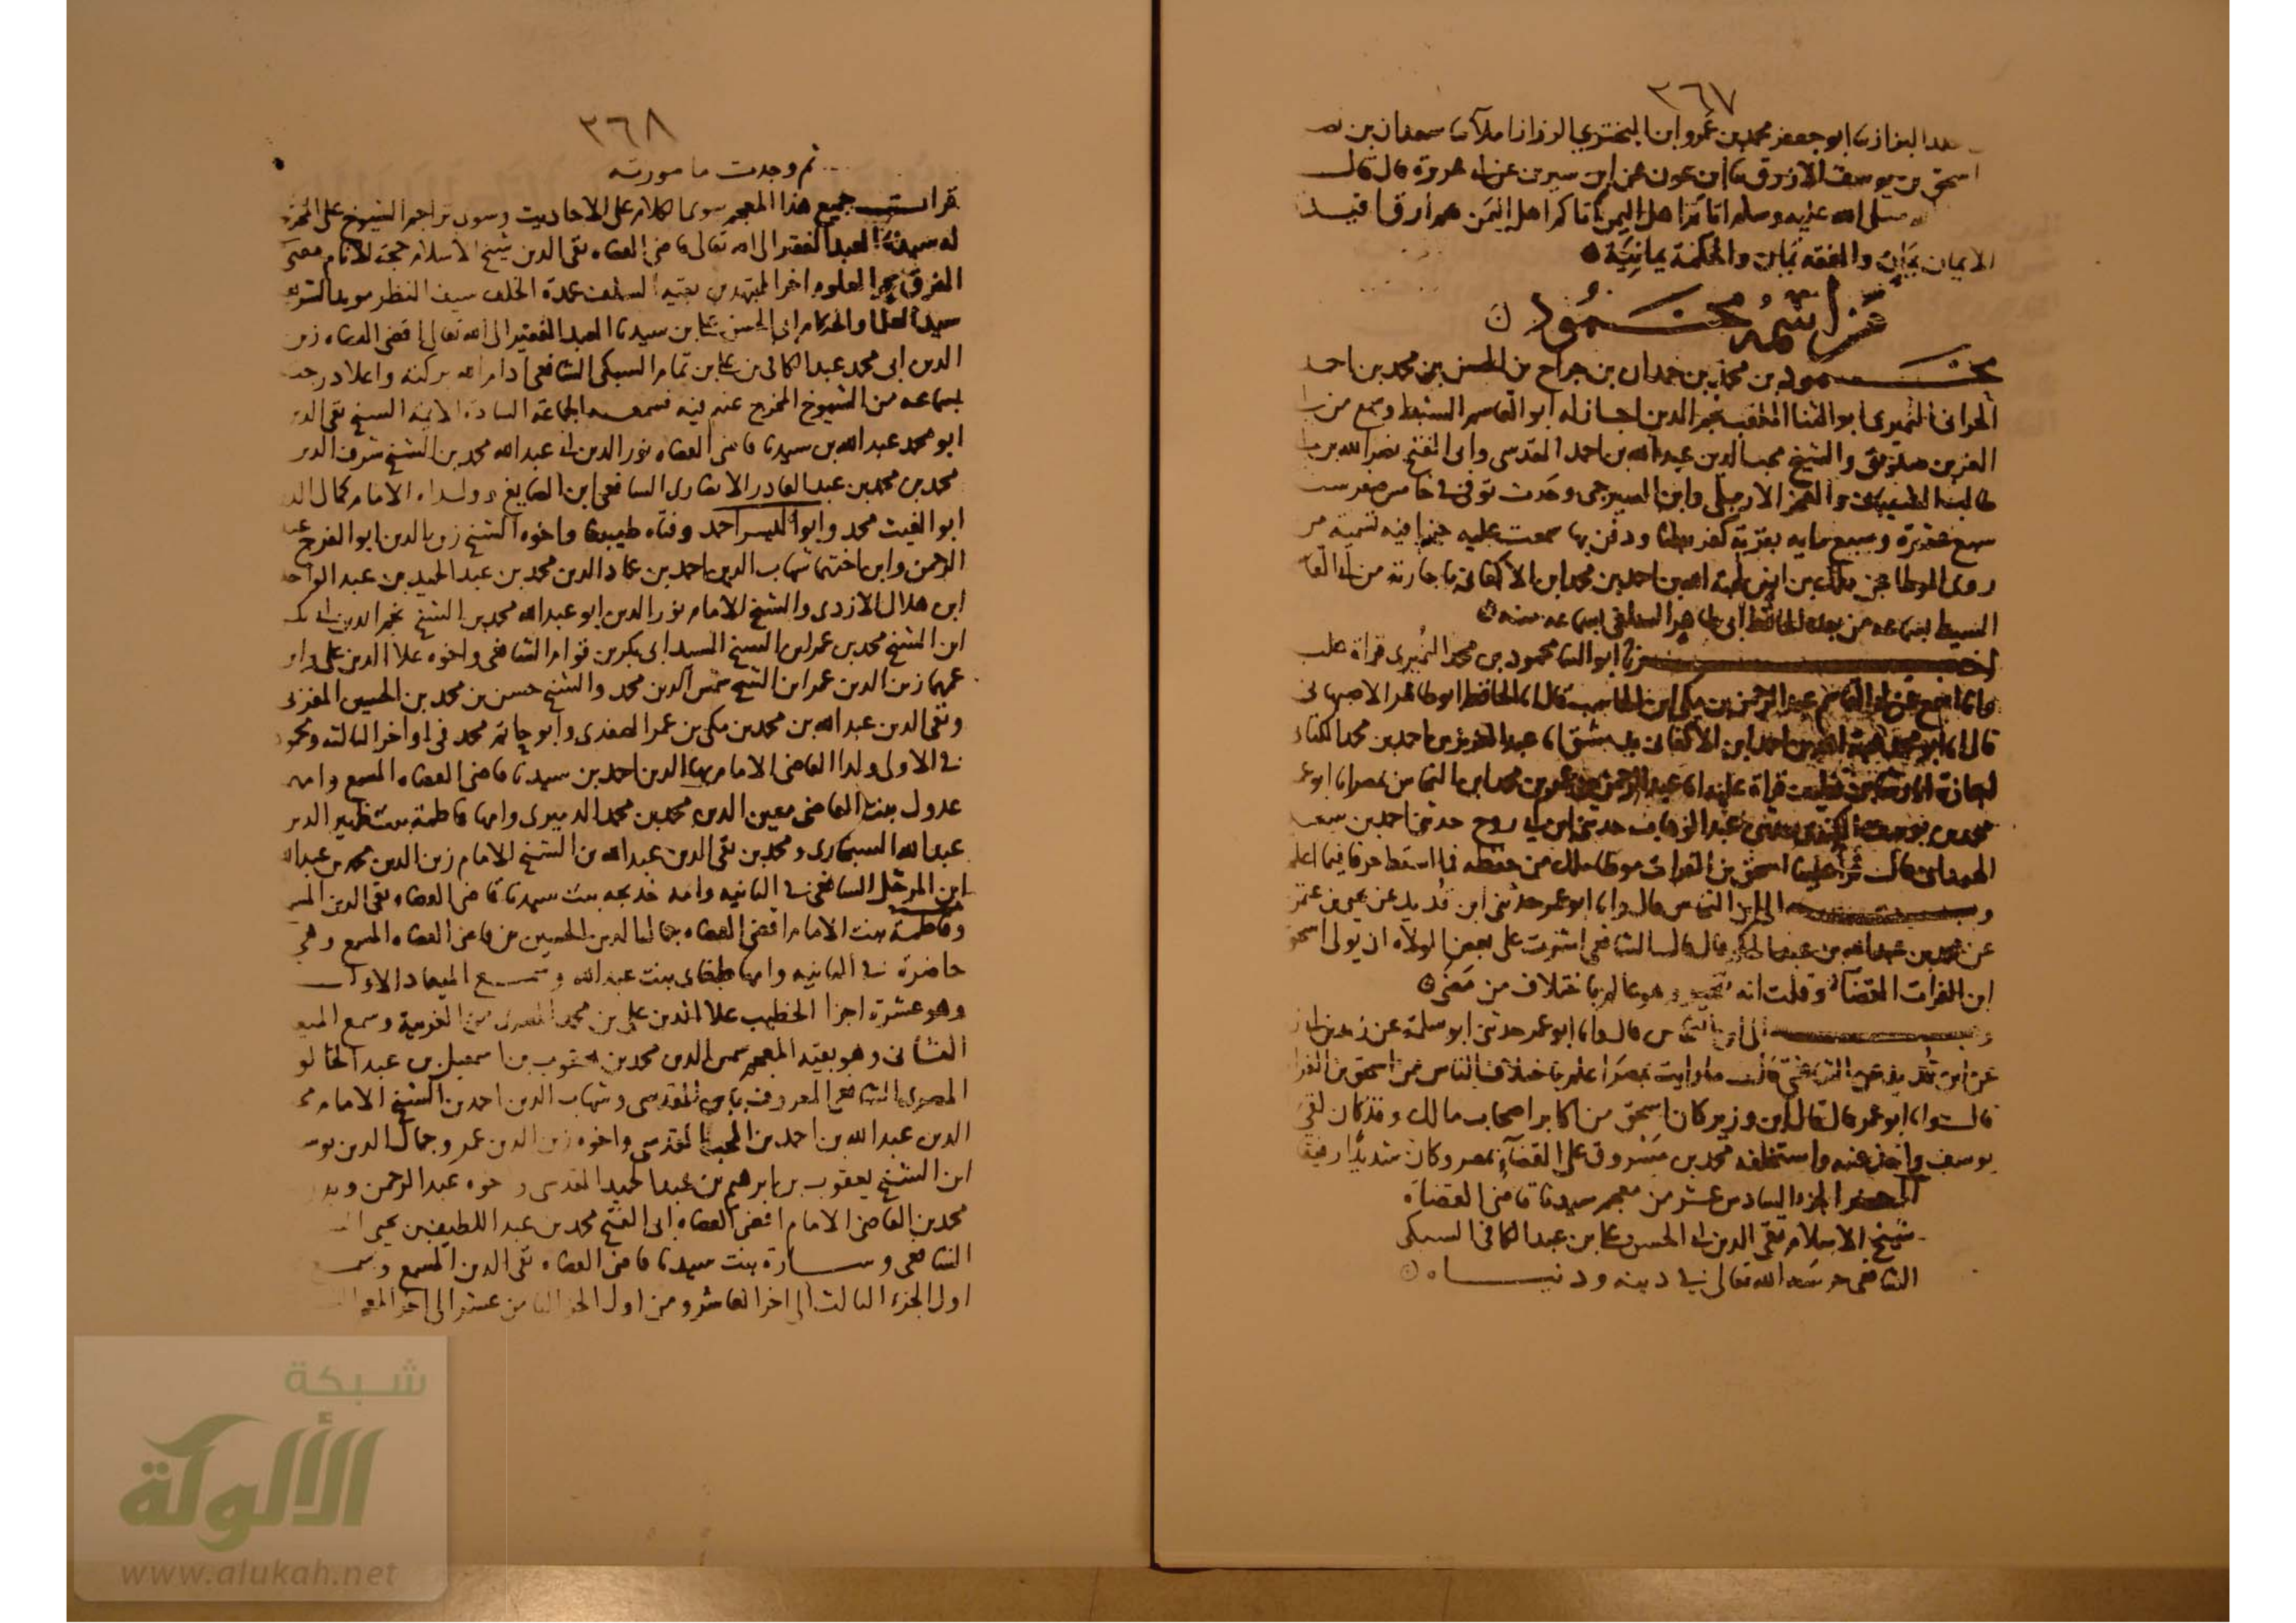 ٣٦٧
البزاز ثنا ابو جعفر محمد بن عمرو ابن البختري الرزاز املاء ثنا سعدان بن نصر
اسحق بن يوسف الازرق ثنا ابن عون عن ابن سيرين عن ابي هريرة قال قال
صلى الله عليه وسلم اتاكم اهل اليمن هم ارق افئدة
الايمان يمان والفقه يمان والحكمة يمانية
من اسمه محمود
محمود بن محمد بن حمدان بن جراح بن الحسن بن محمد بن احمد
الحراني النميري ابو الثنا الملقب نجم الدين اجاز له ابو القاسم السبط وسمع من
العز بن والشيخ محب الدين عبد الله بن احمد المقدسي وابي الفتح نصر الله بن
وحدث توفي في خامس صفر سنة
سبع عشرة وسبع مايه بقرية كفر بطنا ودفن بها سمعت عليه جزا فيه
روى الموطا عن مالك بن انس هبة الله بن احمد بن محمد ابن الاكفاني باجازته من ابي القاسم
السبط بسماعه من جده الحافظ ابي طاهر السلفي بسماعه منه
اخبرنا ابو الثنا محمود بن محمد النميري قراة عليه
وانا اسمع عن ابو القاسم عبد الرحمن بن مكي ابن الحاسب قال انا الحافظ ابو طاهر الاصبهاني
قال انا ابو محمد هبة الله بن احمد ابن الاكفاني بدمشق انا عبد العزيز بن احمد بن محمد الكتاني
قراة عليه انا عبد الرحمن بن عمر بن محمد ابن النحاس بمصر انا ابو عمر
محمد بن يوسف الكندي حدثني عبد الوهاب حدثني ابن ابي روح حدثني احمد بن سعيد
الهمداني قال قرا علينا اسحق بن الفرات موطا مالك من حفظه فما اسقط حرفا فيما اعلم
وبه الى ابن النحاس قال وانا ابو عمر حدثني ابن قديد عن يحيى بن عثمن
عن محمد بن عبد الله بن عبد الحكم قال قال الشافعي اشرت على بعض الولاة ان يولى اسحق
ابن الفرات القضآ وقلت انه يتخير وهو عالم باختلاف من مضى
وبه الى ابن النحاس قال وانا ابو عمر حدثني ابو سلمة عن زيد بن ابي
عن ابن قديد عن الشافعي قال ما رايت بمصر اعلم باختلاف الناس من اسحق بن الفرات
قال وانا ابو عمر قال قال ابن وزير كان اسحق من اكابر اصحاب مالك وقد كان لقي
يوسف واخذ عنه واستخلفه محمد بن مسروق على القضآ بمصر وكان شديدا رفيقا
اخر الجزء السادس عشر من معجم سيدنا قاضى القضاه
شيخ الاسلام تقى الدين ابي الحسن على بن عبد الكافى السبكى
الشافعى حرسه الله تعالى في دينه ودنياه
٣٦٨
ثم وجدت ما صورته
قرات جميع هذا المعجم سوى ما كلام على الاحاديث وسوى تراجم الشيوخ على المخرج
له سيدنا العبد الفقير الى الله تعالى قاضى القضاه تقى الدين شيخ الاسلام حجة الانام مفتى
الفرق بحر العلوم اخر المجتهدين بقية السلف عمدة الخلف سيف النظر مويد الشريعة
سيد العلما والحكام ابى الحسن على بن سيدنا العبد الفقير الى الله تعالى اقضى القضاه زين
الدين ابى محمد عبد الكافى بن على بن تمام السبكى الشافعى ادام الله بركته واعلا درجته
بسماعه من الشيوخ المخرج عنهم فيه فسمعه الجماعة السادة الايمة الشيخ تقى الدين
ابو محمد عبد الله بن سيدنا قاضى القضاه نور الدين ابي عبد الله محمد بن الشيخ شرف الدين
محمد بن محمد بن عبد القادر الانصارى الشافعى ابن الصايغ وولداه الامام كمال الدين
ابو الغيث محمد وابو اليسر احمد وفتاه طيبغا واخوه الشيخ زين الدين ابو الفرج عبد
الرحمن وابن اختهما شهاب الدين احمد بن عماد الدين محمد بن عبد الحميد بن عبد الواحد
ابن هلال الازدى والشيخ الامام نور الدين ابو عبد الله محمد بن الشيخ نجم الدين ابي بكر
ابن الشيخ محمد بن عمر ابن الشيخ السيد ابى بكر بن قوام الشافعى واخوه علا الدين على وابن
عمهما زين الدين عمر ابن الشيخ شمس الدين محمد والشيخ حسن بن محمد بن الحسين المغربى
وتقى الدين عبد الله بن محمد بن مكى بن عمر الصفدى وابو حاتم محمد فى اواخر الثالثه ومحمود
في الاولى ولدا القاضى الامام بها الدين احمد بن سيدنا قاضى القضاه المسمع وامه
عدول بنت القاضى معين الدين محمد بن محمد الدميرى وامها فاطمة بنت ظهير الدين
عبد الله السنجارى ومحمد بن تقى الدين عبد الله بن الشيخ الامام زين الدين محمد بن عبد الله
ابن المرحل الشافعى في الثانيه وامه خديجه بنت سيدنا قاضى القضاه تقى الدين المسمع
وفاطمة بنت الامام اقضى القضاه جمال الدين الحسين بن قاضى القضاه المسمع وهى
حاضرة في الثانيه وامها بنت عبد الله وسمع الميعاد الاول
وهو عشرة اجزا الخطيب علا الدين على بن محمد وسمع الميعاد
الثانى وهو بقية المعجم شمس الدين محمد بن يعقوب بن اسمعيل بن عبد الخالق
المصرى الشافعى المعروف بابن المقدسى وشهاب الدين احمد بن الشيخ الامام محب
الدين عبد الله بن احمد بن المحب المقدسى واخوه زين الدين عمر وجمال الدين يوسف
ابن الشيخ يعقوب بن ابرهيم بن عبد الحميد المقدسى واخوه عبد الرحمن
محمد بن القاضى الامام اقضى القضاه ابى الفتح محمد بن عبد اللطيف بن يحيى
الشافعى وسارة بنت سيدنا قاضى القضاه تقى الدين المسمع وسمع
اول الجزء الثالث الى اخر العاشر ومن اول الجزء الثامن عشر الى اخر المعجم
شبكة
الألوكة
www.alukah.net